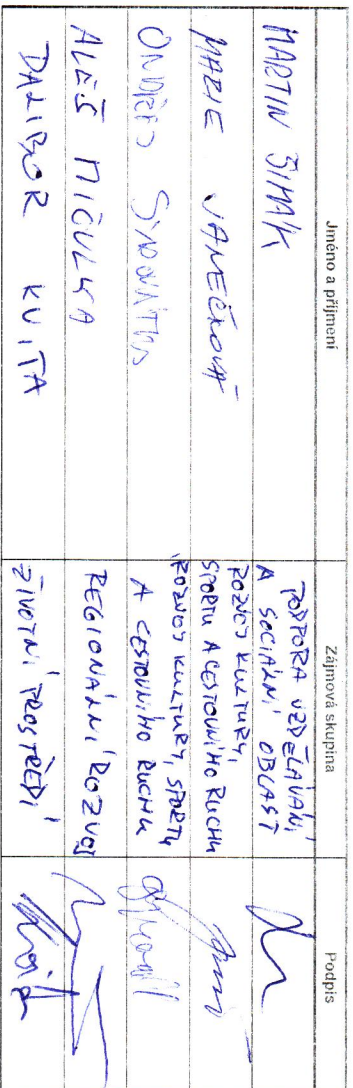 Jméno a příjmení Zájmová skupina Podpis
MARTIN ŠIMÍK PODPORA VZDĚLÁVÁNÍ
A SOCIÁLNÍ OBLAST
MARIE JANEČKOVÁ ROZVOJ KULTURY,
SPORTU A CESTOVNÍHO RUCHU
ONDŘEJ ROZVOJ KULTURY, SPORTU
A CESTOVNÍHO RUCHU
ALEŠ MIČULKA REGIONÁLNÍ ROZVOJ
DALIBOR KVITA ŽIVOTNÍ PROSTŘEDÍ